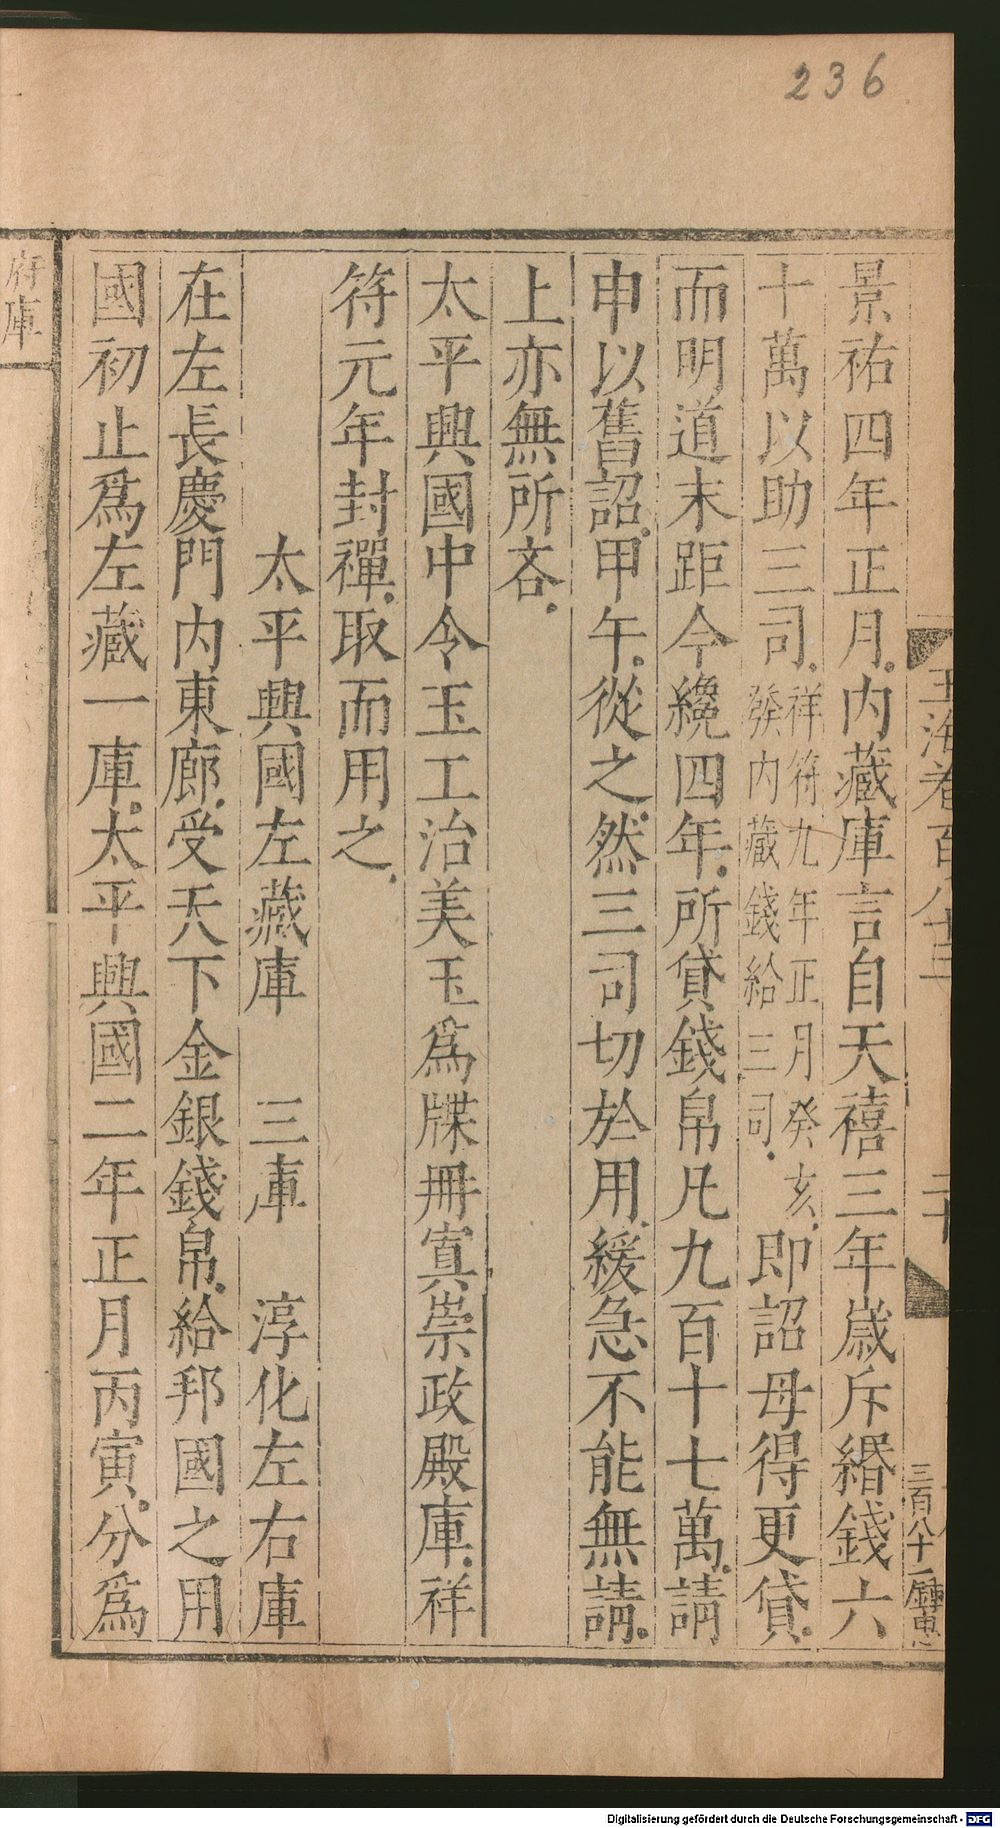 236
景祐四年正月內藏庫言自天禧三年歲斥緡錢六
十萬以助三司祥符九年正月癸亥發內藏錢給三司即詔毋得更貸
而明道末距今纔四年所貸錢帛凡九百十七萬請
申以舊詔甲午從之然三司切於用緩急不能無請
上亦無所吝
太平興國中令玉工治美玉爲牒冊寘崇政殿庫祥
符元年封禪取而用之
太平興國左藏庫 三庫 淳化左右庫
在左長慶門內東廊受天下金銀錢帛給邦國之用
國初止爲左藏一庫太平興國二年正月丙寅分爲
府庫
玉海卷百八十三
三百八十一
Digitalisierung gefördert durch die Deutsche Forschungsgemeinschaft - DFG